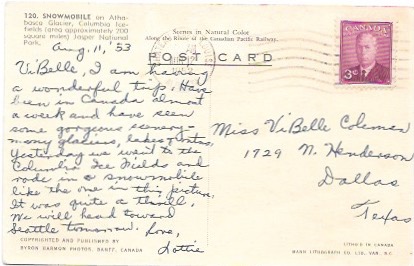 120. SNOWMOBILE on Atha-
basca Glacier, Columbia Ice-
fields (area approximately 200
square miles) Jasper National
Park.
Scenes in Natural Color
Along the Route of the Canadian Pacific Railway.
POST CARD
CANADA
3¢
Aug. 11, '53
Vi'Belle, I am having
a wonderful trip. Have
been in Canada almost
a week and have seen
some gorgeous scenery -
many glaciers, lakes, 
Yesterday we went to the
Columbia Ice Fields and
rode in a snowmobile
like the one in this picture.
It was quite a thrill.
We will head toward
Seattle tomorrow. Love,
Lottie
Miss Vi'Belle Coleman
1729 N. Henderson
Dallas
Texas
COPYRIGHTED AND PUBLISHED BY
BYRON HARMON PHOTOS, BANFF, CANADA
LITHO'D IN CANADA
MAHD LITHOGRAPH CO. LTD., VAN., B.C.